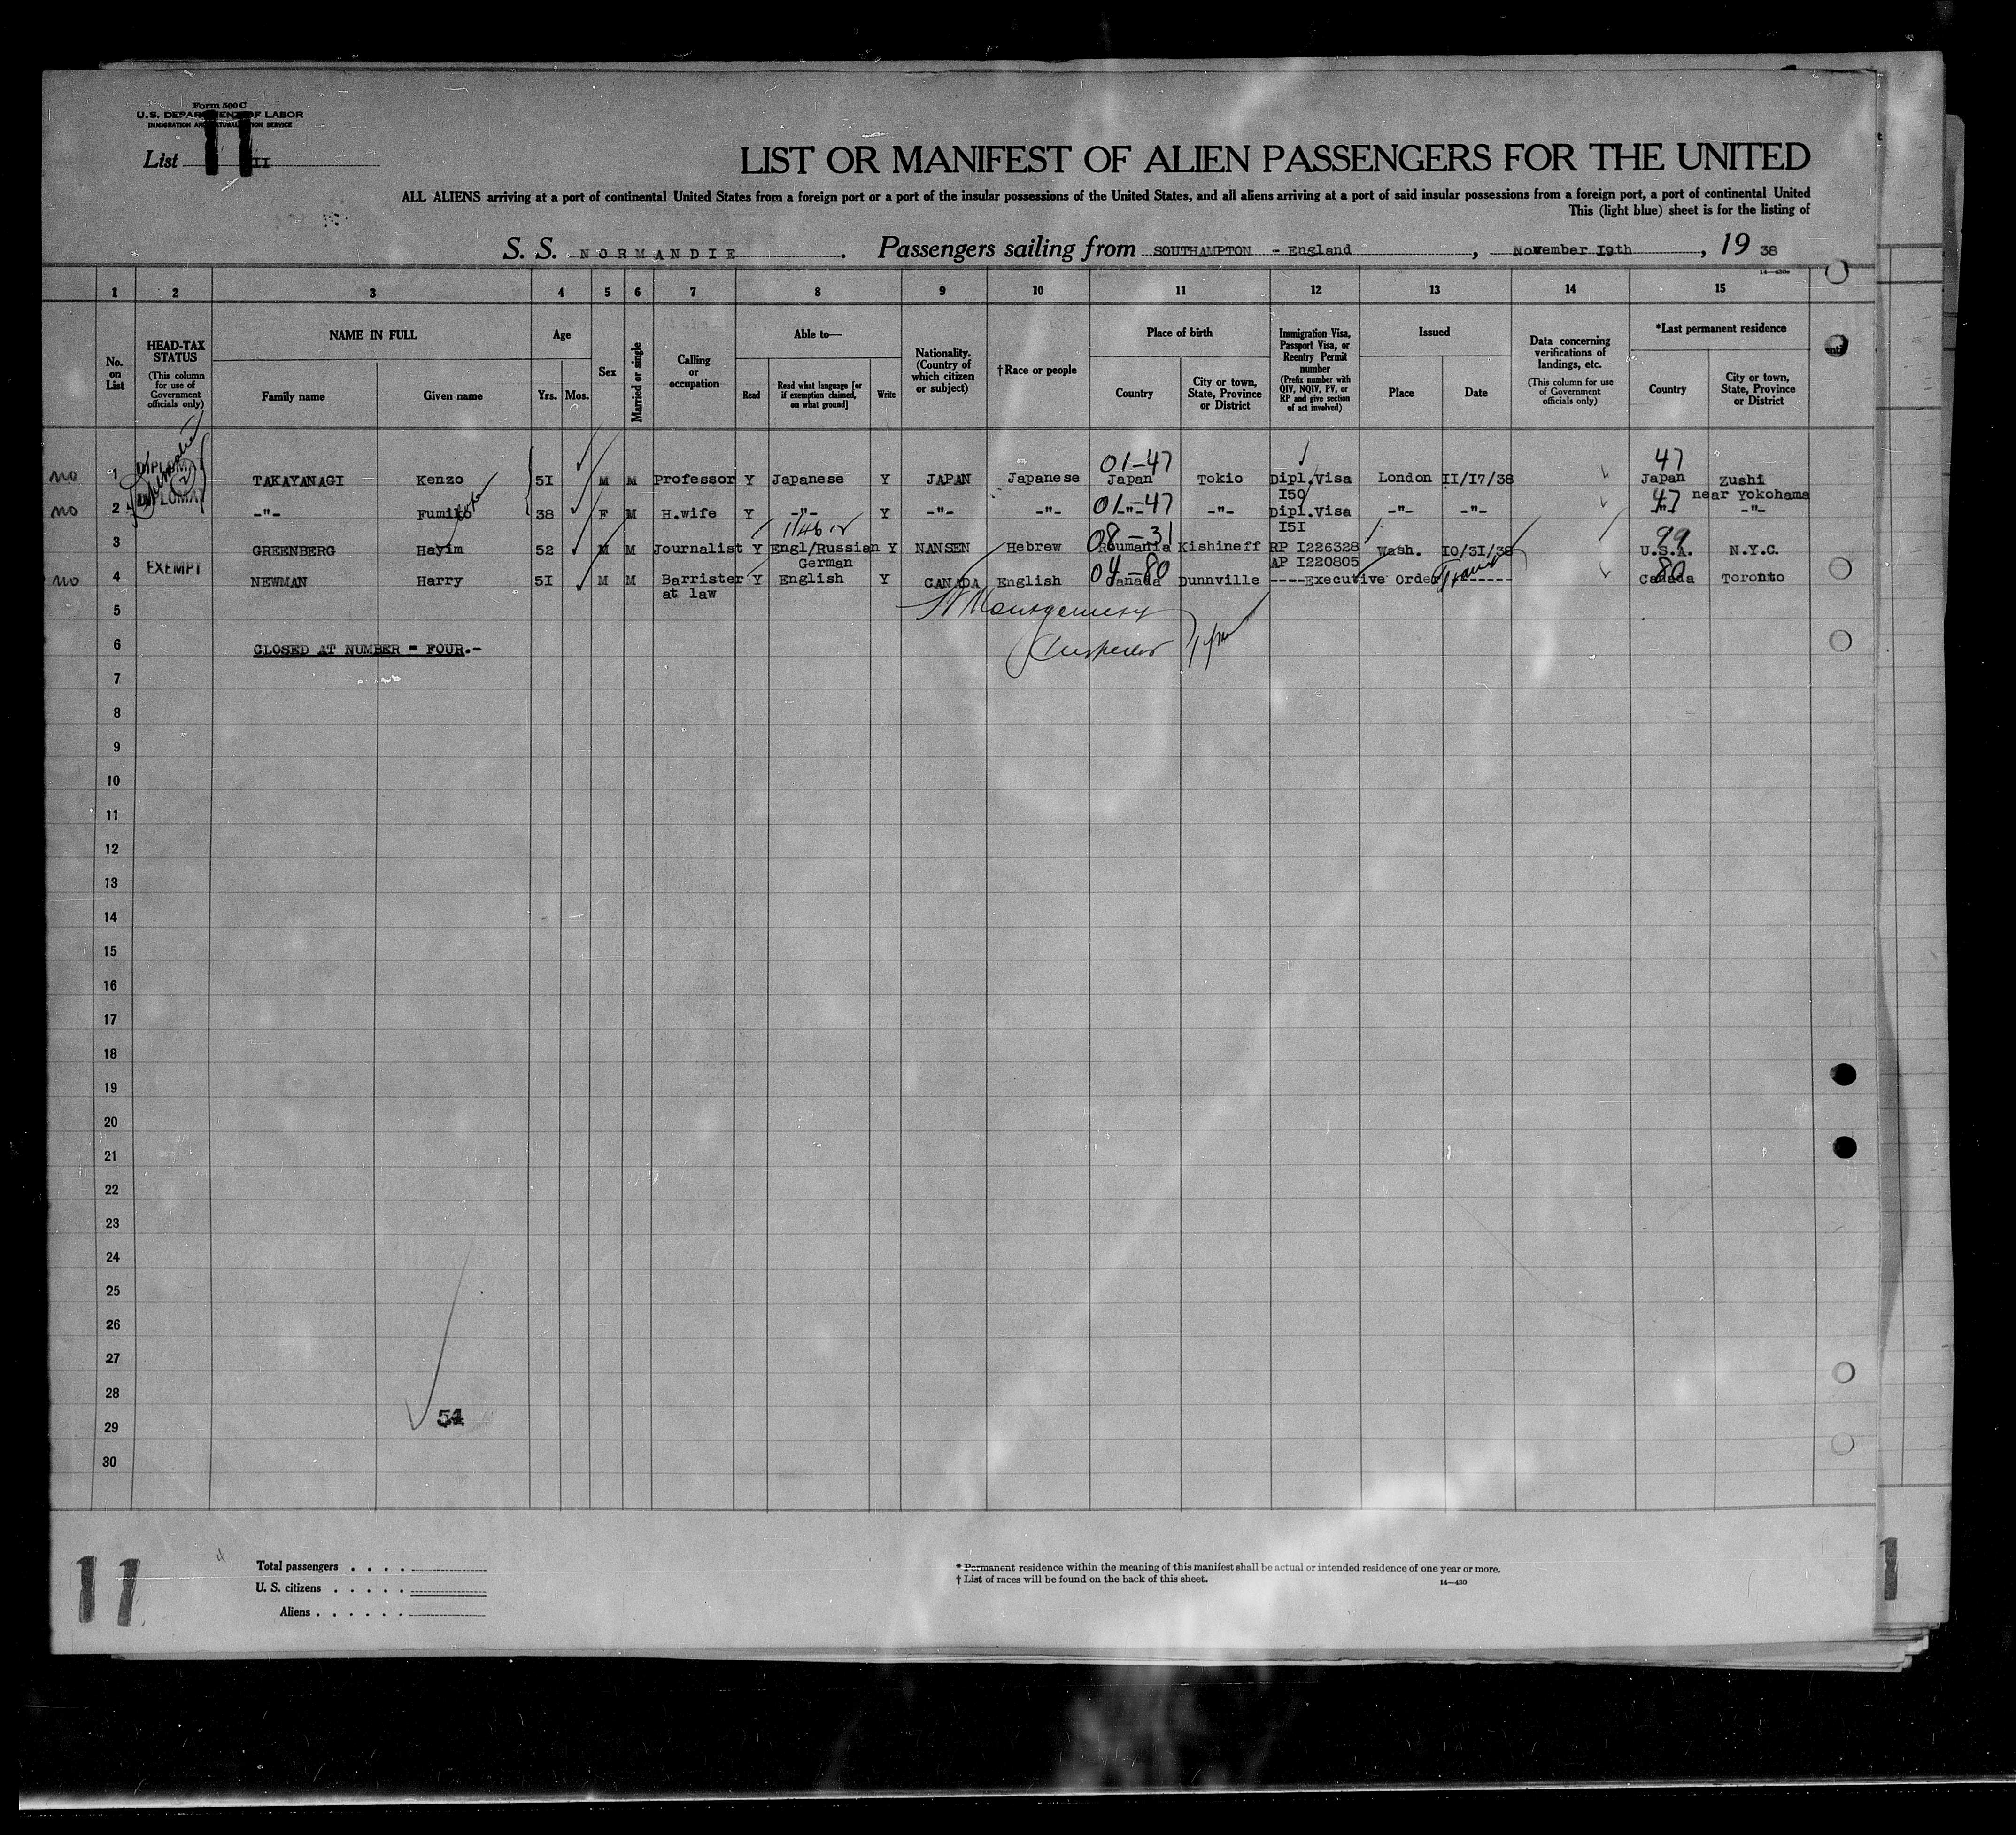 Form 500 C
U.S. DEPARTMENT OF LABOR
IMMIGRATION AND NATURALIZATION SERVICE
List 11 II
LIST OR MANIFEST OF ALIEN PASSENGERS FOR THE UNITED
ALL ALIENS arriving at a port of continental United States from a foreign port or a port of the insular possessions of the United States, and all aliens arriving at a port of said insular possessions from a foreign port, a port of continental United
This (light blue) sheet is for the listing of
S. S. NORMANDIE. Passengers sailing from SOUTHAMPTON - England, November I9th, 19 38
14—430a
1 2 3 4 5 6 7 8 9 10 11 12 13 14 15
No. on List
HEAD-TAX STATUS
(This column for use of Government officials only)
NAME IN FULL
Family name
Given name
Age
Yrs. Mos.
Sex
Married or single
Calling or occupation
Able to—
Read
Read what language [or if exemption claimed, on what ground]
Write
Nationality. (Country of which citizen or subject)
†Race or people
Place of birth
Country
City or town, State, Province or District
Immigration Visa, Passport Visa, or Reentry Permit number
(Prefix number with QIV, NQIV, PV, or RP and give section of act involved)
Issued
Place
Date
Data concerning verifications of landings, etc.
(This column for use of Government officials only)
*Last permanent residence
Country
City or town, State, Province or District
01-47 47
no 1 DIPLOMAT TAKAYANAGI Kenzo 5I M M Professor Y Japanese Y JAPAN Japanese Japan Tokio Dipl.Visa London II/I7/38 Japan Zushi
I50 near Yokohama
no 2 DIPLOMAT -"- Fumiko 38 F M H.wife Y -"- Y -"- -"- 01-47 -"- -"- Dipl.Visa -"- -"- 47 -"- -"-
I5I
08-31 99
3 GREENBERG Hayim 52 M M Journalist Y Engl/Russian Y NANSEN Hebrew Roumania Kishineff RP I226328 Wash. I0/3I/38 U.S.A. N.Y.C.
German AP I220805
no 4 EXEMPT NEWMAN Harry 5I M M Barrister Y English Y CANADA English 04-80 Canada Dunnville ----Executive Order------ 80 Canada Toronto
at law
5
Montgomery
6 CLOSED AT NUMBER = FOUR.-
Inspector
7
8
9
10
11
12
13
14
15
16
17
18
19
20
21
22
23
24
25
26
27
28
54
29
30
11
Total passengers . . . .
U. S. citizens . . . . .
Aliens . . . . . .
* Permanent residence within the meaning of this manifest shall be actual or intended residence of one year or more.
† List of races will be found on the back of this sheet.
14—430